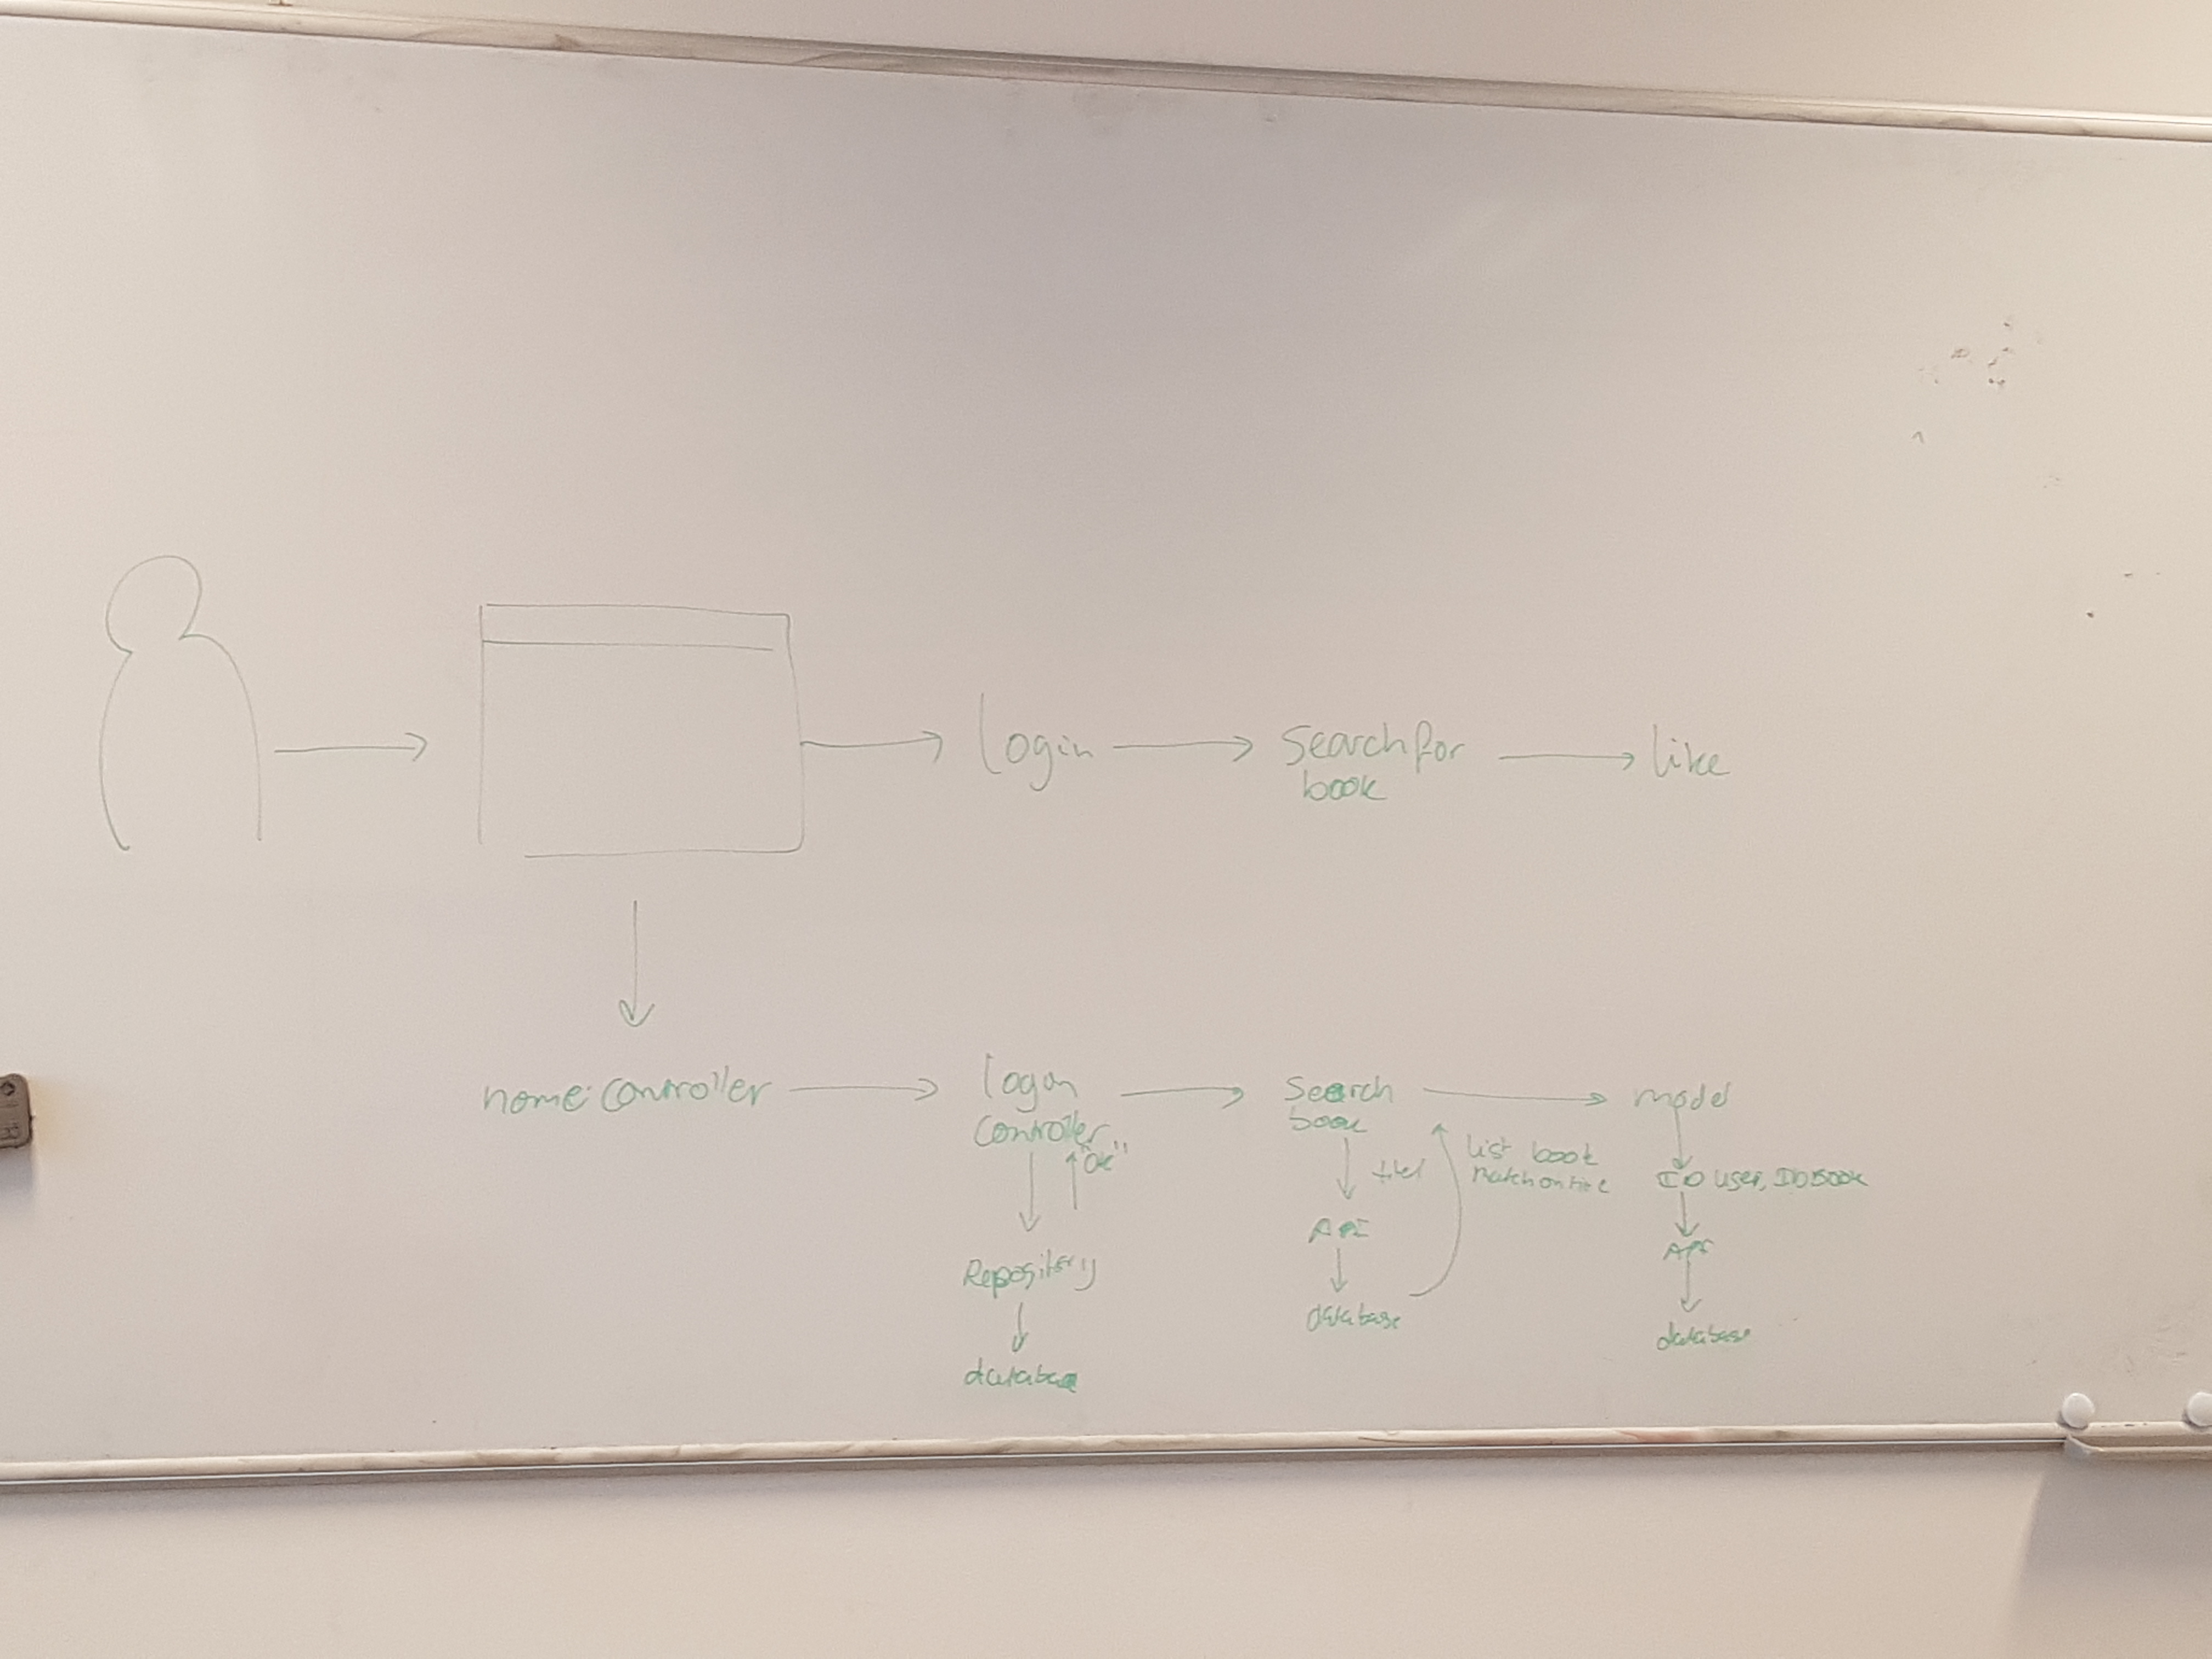 login
search for
book
like
home controller
login
controller
"ok"
Repository
database
search
book
titel
API
database
list book
match on title
model
ID user, ID BOOK
API
database